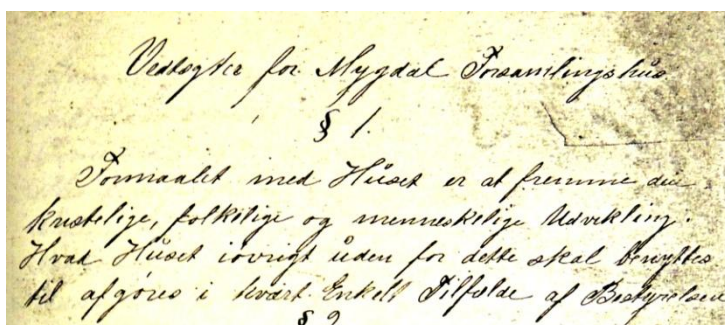 Vedtægter for Mygdal Forsamlingshus
§ 1.
Formaalet med Huset er at fremme den
kristelige, folkelige og menneskelige Udvikling.
Hvad Huset iøvrigt uden for dette skal benyttes
til afgøres i hvært Enkelt Tilfælde af Bestyrelsen
§ 2